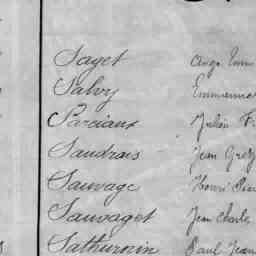 Saget Ange
Salvy
Parciaux Julien
Saudrais Jean
Sauvage Henri
Sauvaget Jean Charles
Sathurnin Paul Jean